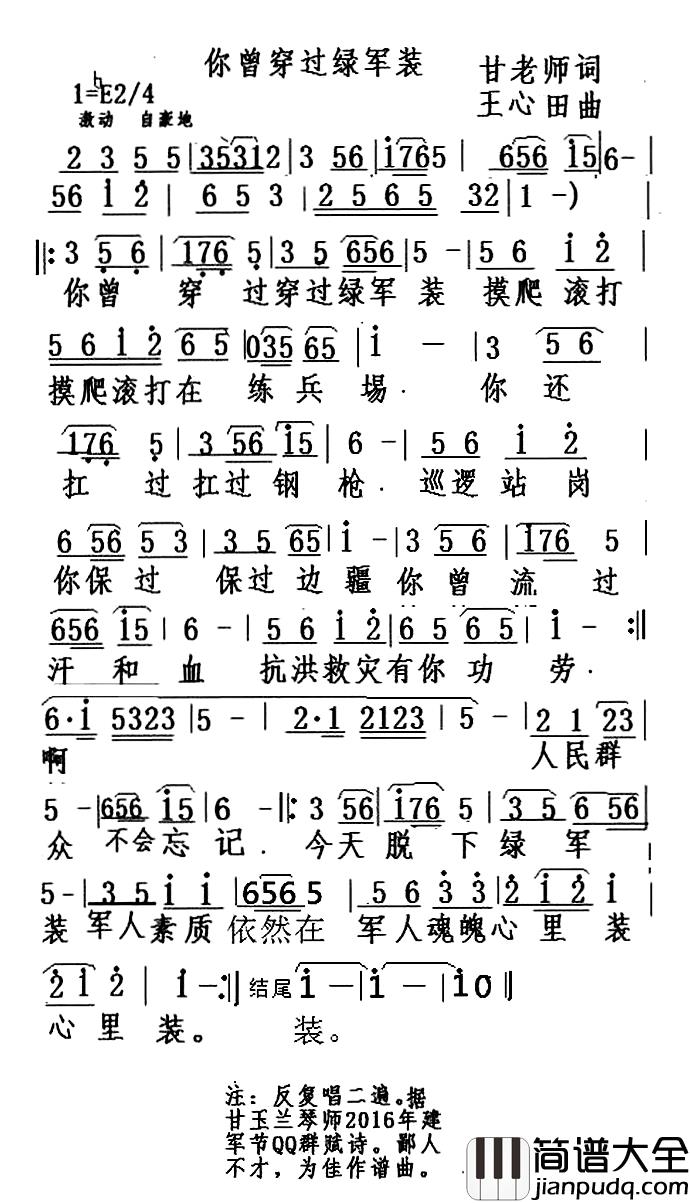 你曾穿过绿军装
甘老师词
1=♭E2/4
王心田曲
激动 自豪地
2 3 5 5 | 35312 | 3 56 | i765 | 656 i5 | 6 - |
56 i 2 | 6 5 3 | 2 5 6 5 32 | 1 - )
‖: 3 5 6 | 176 5 | 3 5 656 | 5 - | 5 6 i 2 |
你曾 穿 过穿过绿军 装 摸爬 滚打
5 6 i 2 6 5 | 035 65 | i - | 3 5 6 |
摸爬滚打在 练兵 場. 你还
176 5 | 3 56 i5 | 6 - | 5 6 i 2 |
扛 过扛过钢 枪. 巡逻站岗
6 56 5 3 | 5 3 65 | i - | 3 5 6 | i76 5 |
你保过 保过边疆你曾流过
656 i5 | 6 - | 5 6 i 2 | 6 5 6 5 | i - :‖
汗和血 抗洪救灾有你功 劳.
6·i 5323 | 5 - | 2·1 2123 | 5 - | 2 1 23 |
啊 人民群
5 - | 656 i5 | 6 - ‖: 3 56 | i76 5 | 3 5 6 56 |
众 不会忘记. 今天脱 下绿军
5 - | 3 5 i i | 656 5 | 5 6 3 3 | 2 i 2 i |
装 军人素质依然在 军人魂魄心里 装
2 i 2 | i - :‖ 结尾 i - | i - | i 0 ‖
心里 装。 装。
注: 反复唱二遍。据
甘玉兰琴师2016年建
军节QQ群赋诗。鄙人
不才，为佳作谱曲。
简谱大全
jianpudq.com